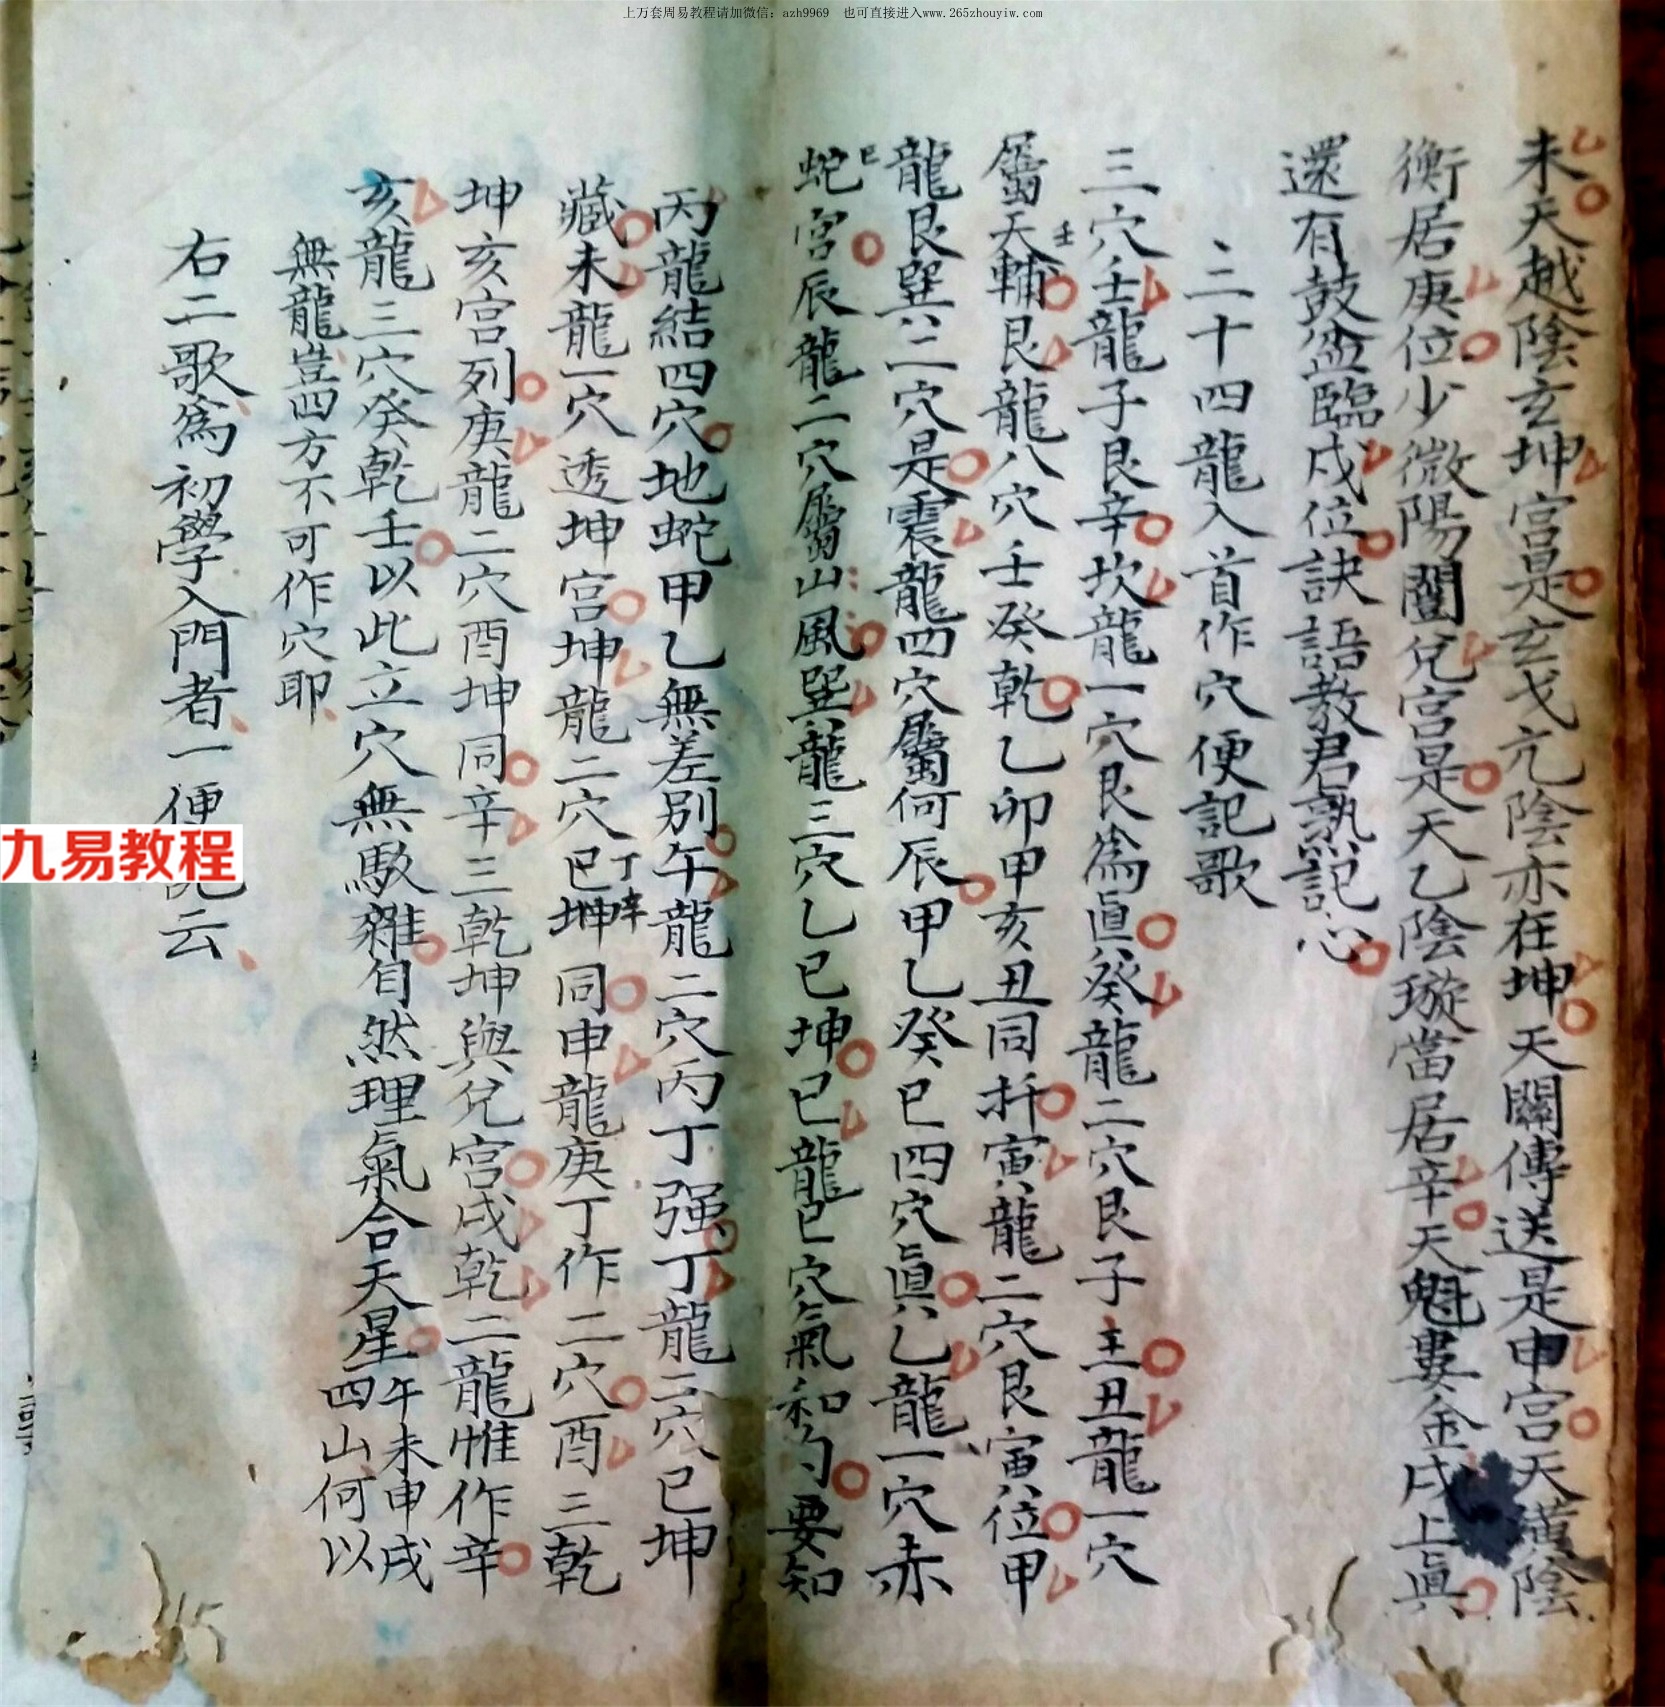 上万套周易教程请加微信：azh9969　也可直接进入www.265zhouyiw.com
未天越陰玄坤宮是玄戈亢陰亦在坤天關傳送是申宮天潢陰
衡居庚位少微陽闔兌宮是天乙陰璇當居辛天魁婁金戌上眞
還有鼓盆臨戌位訣語教君熟記心
二十四龍入首作穴便記歌
三穴壬龍子艮辛坎龍一穴艮爲眞癸龍二穴艮子主丑龍一穴
屬天輔艮龍八穴壬癸乾乙卯甲亥丑同扦寅龍二穴艮寅位甲
壬
龍艮巽二穴是震龍四穴屬何辰甲乙癸巳四穴眞乙龍一穴赤
蛇宮辰龍二穴屬山風巽龍三穴乙巳坤巳龍巳穴氣和勻要知
巳
丙龍結四穴地蛇甲乙無差別午龍二穴丙丁强丁龍二穴巳坤
藏未龍一穴透坤宮坤龍二穴巳坤同申龍庚丁作二穴酉三乾
丁辛
坤亥宮列庚龍二穴酉坤同辛三乾坤與兌宮戌乾二龍惟作辛
亥龍三穴癸乾壬以此立穴無駁雜自然理氣合天星午未申戌
四山何以
無龍豈四方不可作穴耶
右二歌爲初學入門者一便記云
九易教程